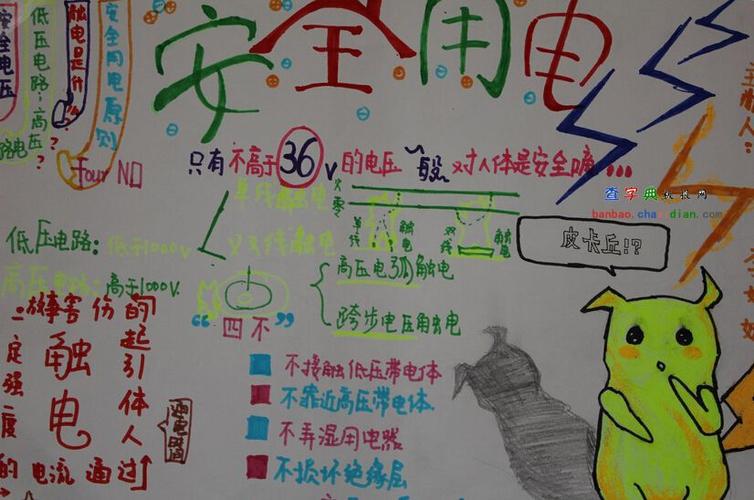 安全用电
安全电压
低压电路：高压？
触电是什么
安全用电原则
four NO
只有不高于36V的电压一般对人体是安全嘀...
单线触电
双线触电
火
零
单线
触电
双线
触电
查字典
banbao.chazidian.com
皮卡丘!?
低压电路：低于1000V
高压电路：高于1000V.
高压电弧触电
跨步电压触电
“四不”
不接触低压带电体
不靠近高压带电体
不弄湿用电器
不损坏绝缘层
触电
一定强度的电流通过人体引起的伤害事故